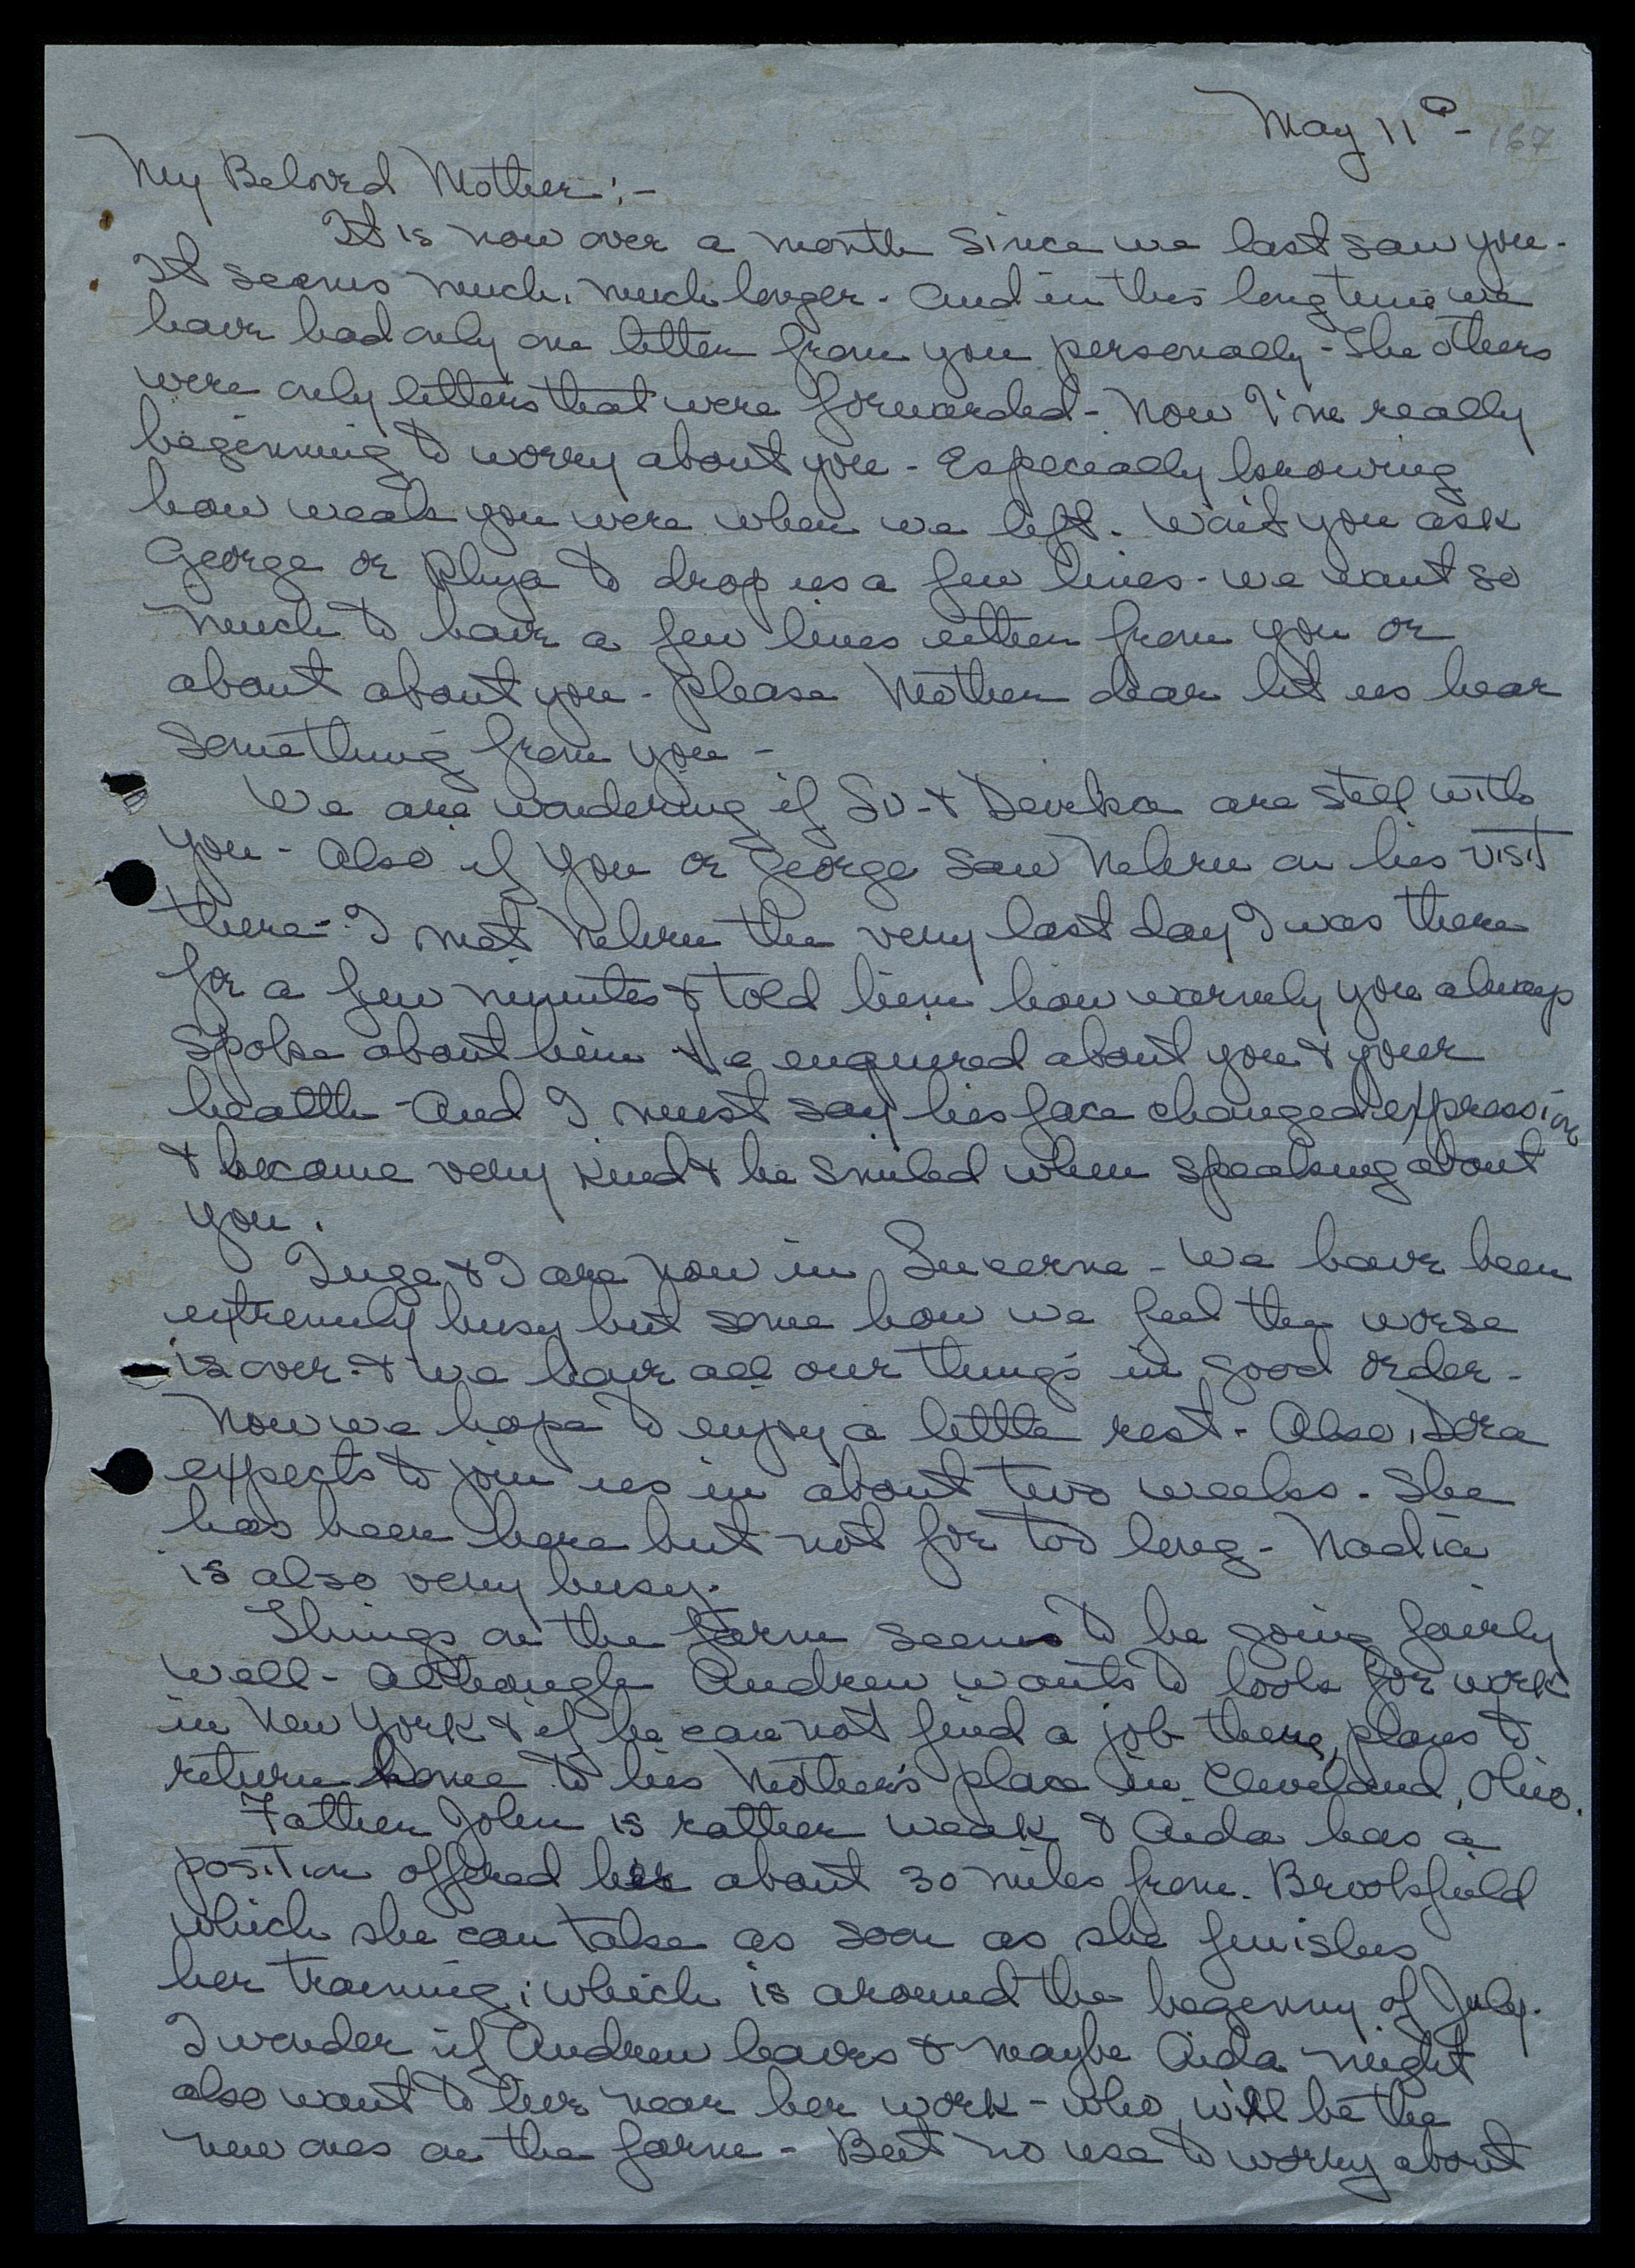 May 11th - 167
My Beloved Mother:-
It is now over a month since we last saw you.
It seems much, much longer. And in this long time we
have had only one letter from you personally - The others
were only letters that were forwarded - Now I'm really
beginning to worry about you - Especially knowing
how weak you were when we left. Won't you ask
George or Phya to drop us a few lines - we want so
much to have a few lines either from you or
about about you - Please Mother dear let us hear
something from you -
We are wondering if Sv. & Devika are still with
you - Also if you or George saw Nehru on his visit
there - I met Nehru the very last day I was there
for a few minutes & told him how warmly you always
spoke about him. He enquired about you & your
health - And I must say his face changed expression
& became very kind & he smiled when speaking about
you.
Inge & I are now in Lucerne - We have been
extremely busy but some how we feel the worse
is over - & we have all our things in good order -
Now we hope to enjoy a little rest - Also, Dora
expects to join us in about two weeks. She
has been here but not for too long - Nadia
is also very busy.
Things on the farm seems to be going fairly
well - Although Andrew wants to look for work
in New York & if he can not find a job there, plans to
return home to his Mother's place in Cleveland, Ohio.
Father John is rather weak & Aida has a
position offered her about 30 miles from Brookfield
which she can take as soon as she finishes
her training; which is around the beginny of July.
I wonder if Andrew leaves & maybe Aida might
also want to live near her work - who will be the
new ones on the farm - But no use to worry about